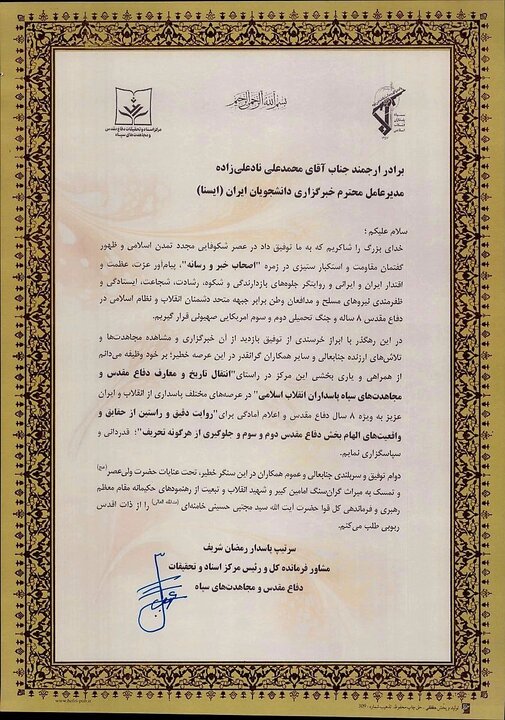 بسم الله الرحمن الرحیم
سپاه
پاسداران
انقلاب
اسلامی
مرکز اسناد و تحقیقات دفاع مقدس
و مجاهدت‌های سپاه
برادر ارجمند جناب آقای محمدعلی نادعلی‌زاده
مدیرعامل محترم خبرگزاری دانشجویان ایران (ایسنا)
سلام علیکم ؛
خدای بزرگ را شاکریم که به ما توفیق داد در عصر شکوفایی مجدد تمدن اسلامی و ظهور
گفتمان مقاومت و استکبار ستیزی در زمره "اصحاب خبر و رسانه"، پیام‌آور عزت، عظمت و
اقتدار ایران و ایرانی و روایتگر جلوه‌های بازدارندگی و شکوه، رشادت، شجاعت، ایستادگی و
ظفرمندی نیروهای مسلح و مدافعان وطن برابر جبهه متحد دشمنان انقلاب و نظام اسلامی در
دفاع مقدس ۸ ساله و جنگ تحمیلی دوم و سوم امریکایی صهیونی قرار گیریم.
در این رهگذر با ابراز خرسندی از توفیق بازدید از آن خبرگزاری و مشاهده مجاهدت‌ها و
تلاش‌های ارزنده جنابعالی و سایر همکاران گرانقدر در این عرصه خطیر؛ بر خود وظیفه می‌دانم
از همراهی و یاری بخشی این مرکز در راستای "انتقال تاریخ و معارف دفاع مقدس و
مجاهدت‌های سپاه پاسداران انقلاب اسلامی" در عرصه‌های مختلف پاسداری از انقلاب و ایران
عزیز به ویژه ۸ سال دفاع مقدس و اعلام آمادگی برای "روایت دقیق و راستین از حقایق و
واقعیت‌های الهام بخش دفاع مقدس دوم و سوم و جلوگیری از هرگونه تحریف"؛ قدردانی و
سپاسگزاری نمایم.
دوام توفیق و سربلندی جنابعالی و عموم همکاران در این سنگر خطیر، تحت عنایات حضرت ولی‌عصر (عج)
و تمسک به میراث گران‌سنگ امامین کبیر و شهید انقلاب و تبعیت از رهنمودهای حکیمانه مقام معظم
رهبری و فرماندهی کل قوا حضرت آیت الله سید مجتبی حسینی خامنه‌ای (مدظله العالی) را از ذات اقدس
ربوبی طلب می‌کنم.
سرتیپ پاسدار رمضان شریف
مشاور فرمانده کل و رئیس مرکز اسناد و تحقیقات
دفاع مقدس و مجاهدت‌های سپاه